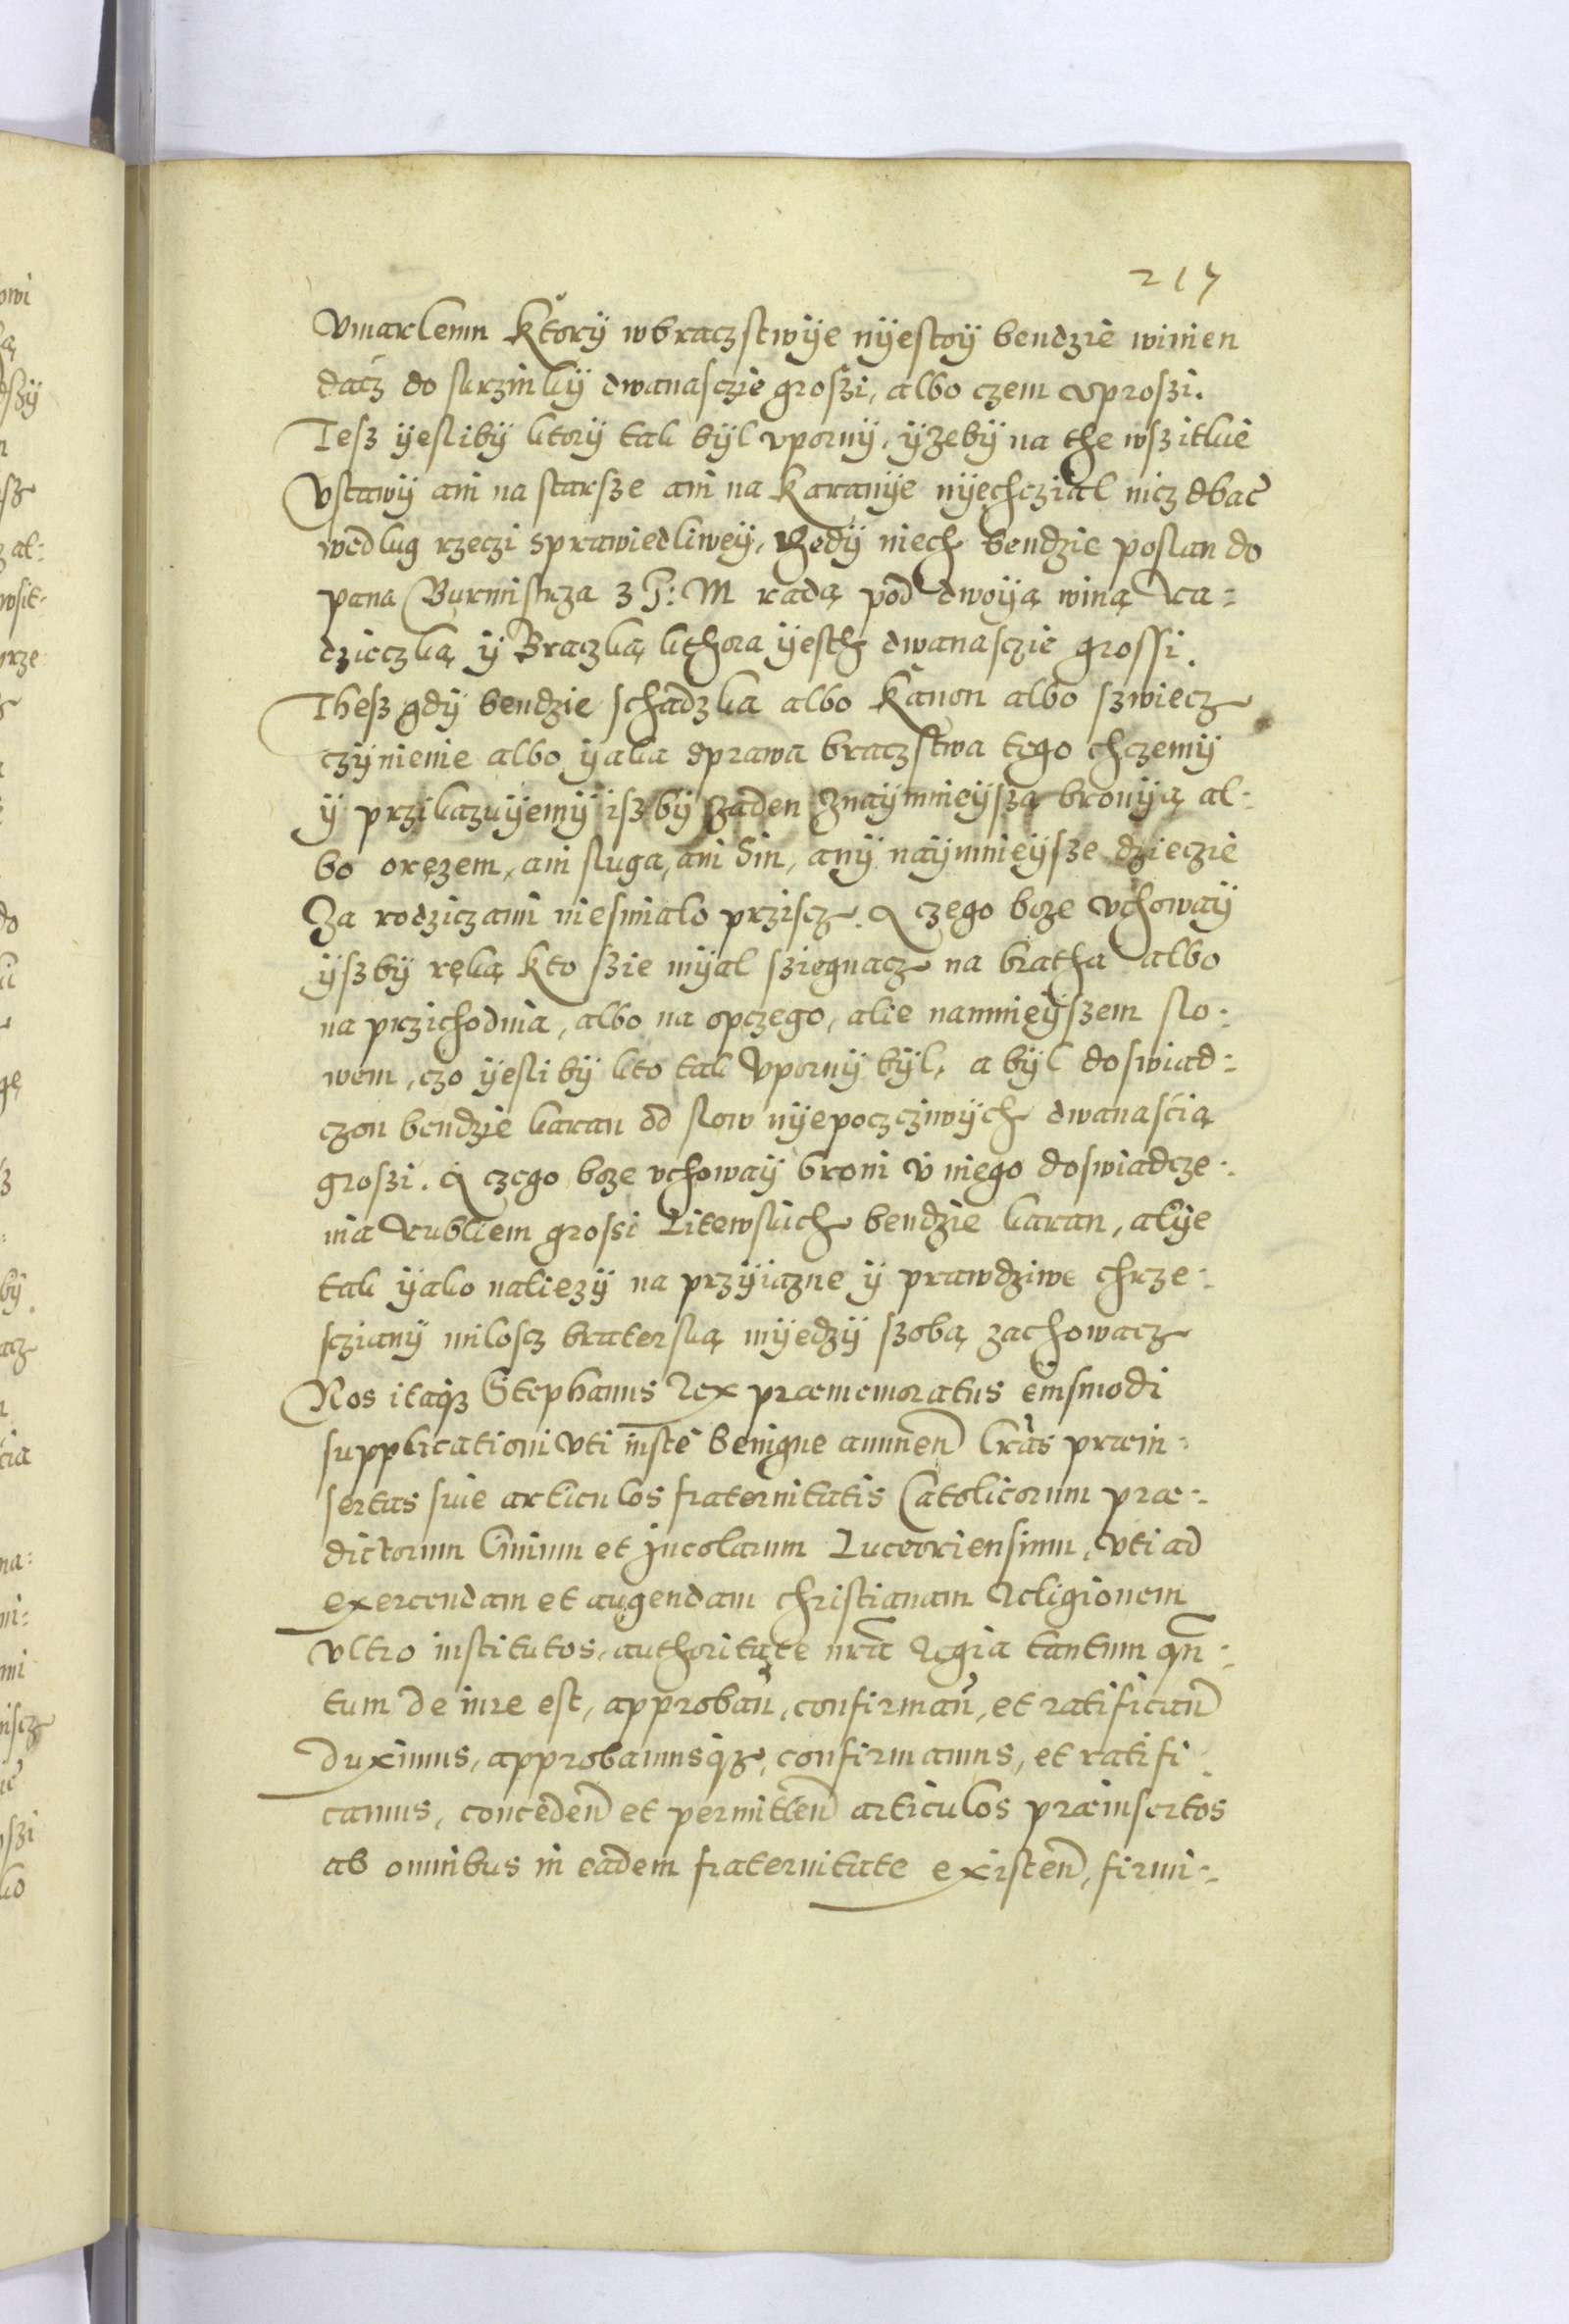 217
Vmarlemu Ktorÿ wbraczstwÿe nÿestoÿ bendzie winien
dacz do skrzinkÿ dwanasczie groszi, albo czem vproszi.
Tesz ÿeslibÿ ktorÿ tak bÿl vpornÿ, ÿzebÿ na the wszitkie
Vstawÿ ani na starsze ani na Karanÿe nÿechczial nicz dbac
wedlug rzeczi sprawiedliweÿ, thedÿ niech bendzie poslan do
pana Burmistrza z P: M radą pod dwoÿą winą Ra-
dzieczką ÿ Braczką kthora ÿesth dwanasczie grossi.
Thesz gdÿ bendzie schadzka albo Kanon albo szwiecz
czÿnienie albo ÿaka sprawa braczstwa tego chczemÿ
ÿ przikazuÿemÿ iszbÿ żaden znaÿmnieÿszą bronÿą al-
bo orężem, ani sluga, ani Sin, anÿ naÿmnieÿsze dziecziе
Za rodziczami niesmialo prziscz. A czego boze vchowaÿ
ÿszbÿ ręką kto szie mÿal sziegnacz na bratha albo
na przichodnia, albo na opczego, alie namnieÿszem slo-
wem, czo ÿeslibÿ kto tak Vpornÿ bÿl, a bÿl doswiad-
czon bendzie karan od slow nÿepoczciwÿch dwanascią
groszi. A czego boze vchowaÿ broni v niego doswiadcze-
nia Rubliem grossi Litewskich bendzie karan, alÿe
tak ÿako naliezÿ na przÿiazne ÿ prawdziwe chrze-
scianÿ miloscz braterską mÿedzÿ szobą zachowacz
Nos itaqȝ Stephanus Rex præmemoratus eiusmodi
supplicationi vti iuste benigne annuen̄ lr̄as præin-
sertas siue articulos fraternitatis Catolicorum præ-
dictorum Ciuium et Jncolarum Luceoriensium, vti ad
exercendam et augendam christianam Religionem
vltro institutos, authoritate nr̄a Regia tantum qn̄-
tum de iure est, approban̄, confirman̄, et ratifican̄
duximus, approbamusqȝ, confirmamus, et ratifi-
camus, conceden̄ et permitten̄ articulos præinsertos
ab omnibus in eadem fraternitate existen̄, firmi-